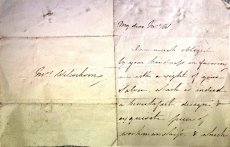 My dear Mrs W.
I am much obliged
by your kindness in favoring
me with a sight of your
which is indeed
a beautiful design &
exquisite piece of
workmanship & which
Mrs